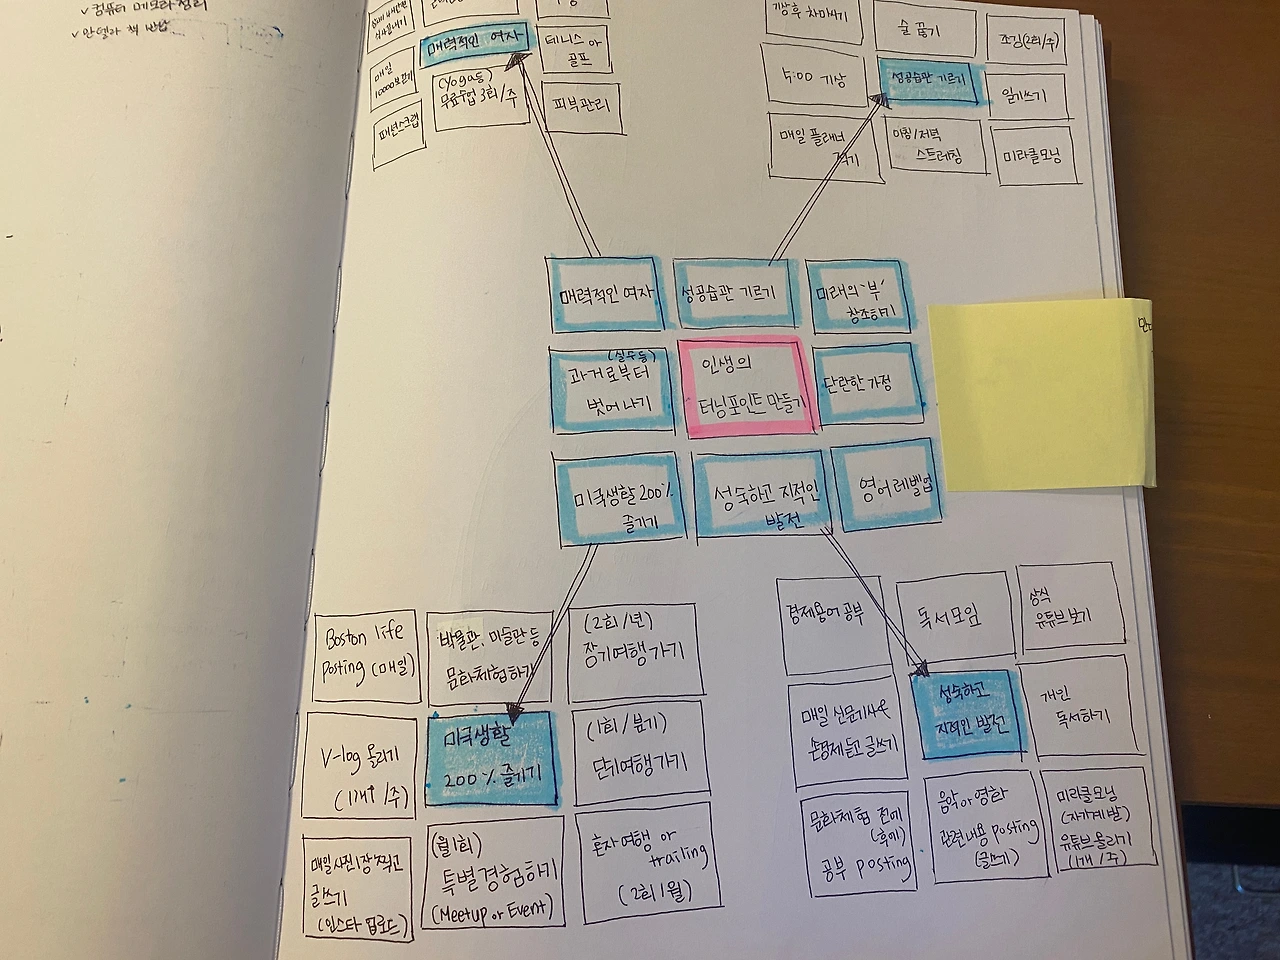 ✓ 컴퓨터 메모라 정리
매력적인 여자
테니스 or
골프
매일
10000보 걷기
(yoga등)
무료수업 3회/주
피부관리
패션스크랩
기상 후 차마시기
술 끊기
조깅(2회/주)
5:00 기상
성공습관 기르기
일기쓰기
매일 플래너
적기
아침/저녁
스트레칭
미라클모닝
매력적인 여자
성공습관 기르기
미래의 '부'
창조하기
(실수등)
과거로부터
벗어나기
인생의
터닝포인트 만들기
단란한 가정
미국생활 200%
즐기기
성숙하고 지적인
발전
영어 레벨업
Boston life
posting (매일)
박물관, 미술관 등
문화체험하기
(2회/년)
장기여행 가기
V-log 올리기
(1개↑/주)
미국생활
200% 즐기기
(1회/분기)
단기여행 가기
매일 사진 1장 찍고
글쓰기
(인스타 업로드)
(월1회)
특별경험하기
(Meetup or Event)
혼자여행 or
trailing
(2회/월)
경제용어 공부
독서모임
상식
유튜브 보기
매일 신문기사or
손경제듣고 글쓰기
성숙하고
지적인 발전
개인
독서하기
문화체험 전에
(후에)
공부 posting
음악 or 영화
관련내용 posting
(글쓰기)
미라클모닝
(자기계발)
유튜브올리기
(1개/주)